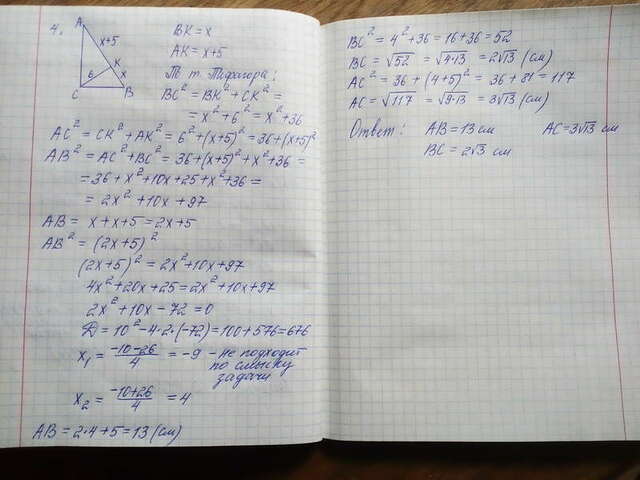 4.
A
x+5
K
6
x
C
B
BK = x
AK = x+5
По т. Пифагора:
BC² = BK² + CK² =
= x² + 6² = x² + 36
AC² = CK² + AK² = 6² + (x+5)² = 36 + (x+5)²
AB² = AC² + BC² = 36 + (x+5)² + x² + 36 =
= 36 + x² + 10x + 25 + x² + 36 =
= 2x² + 10x + 97
AB = x + x + 5 = 2x + 5
AB² = (2x+5)²
(2x+5)² = 2x² + 10x + 97
4x² + 20x + 25 = 2x² + 10x + 97
2x² + 10x - 72 = 0
D = 10² - 4·2·(-72) = 100 + 576 = 676
x₁ = (-10-26)/4 = -9 - не подходит
по смыслу
задачи
x₂ = (-10+26)/4 = 4
AB = 2·4+5 = 13 (см)
BC² = 4² + 36 = 16 + 36 = 52
BC = √52 = √4·13 = 2√13 (см)
AC² = 36 + (4+5)² = 36 + 81 = 117
AC = √117 = √9·13 = 3√13 (см)
Ответ: AB = 13 см AC = 3√13 см
BC = 2√13 см